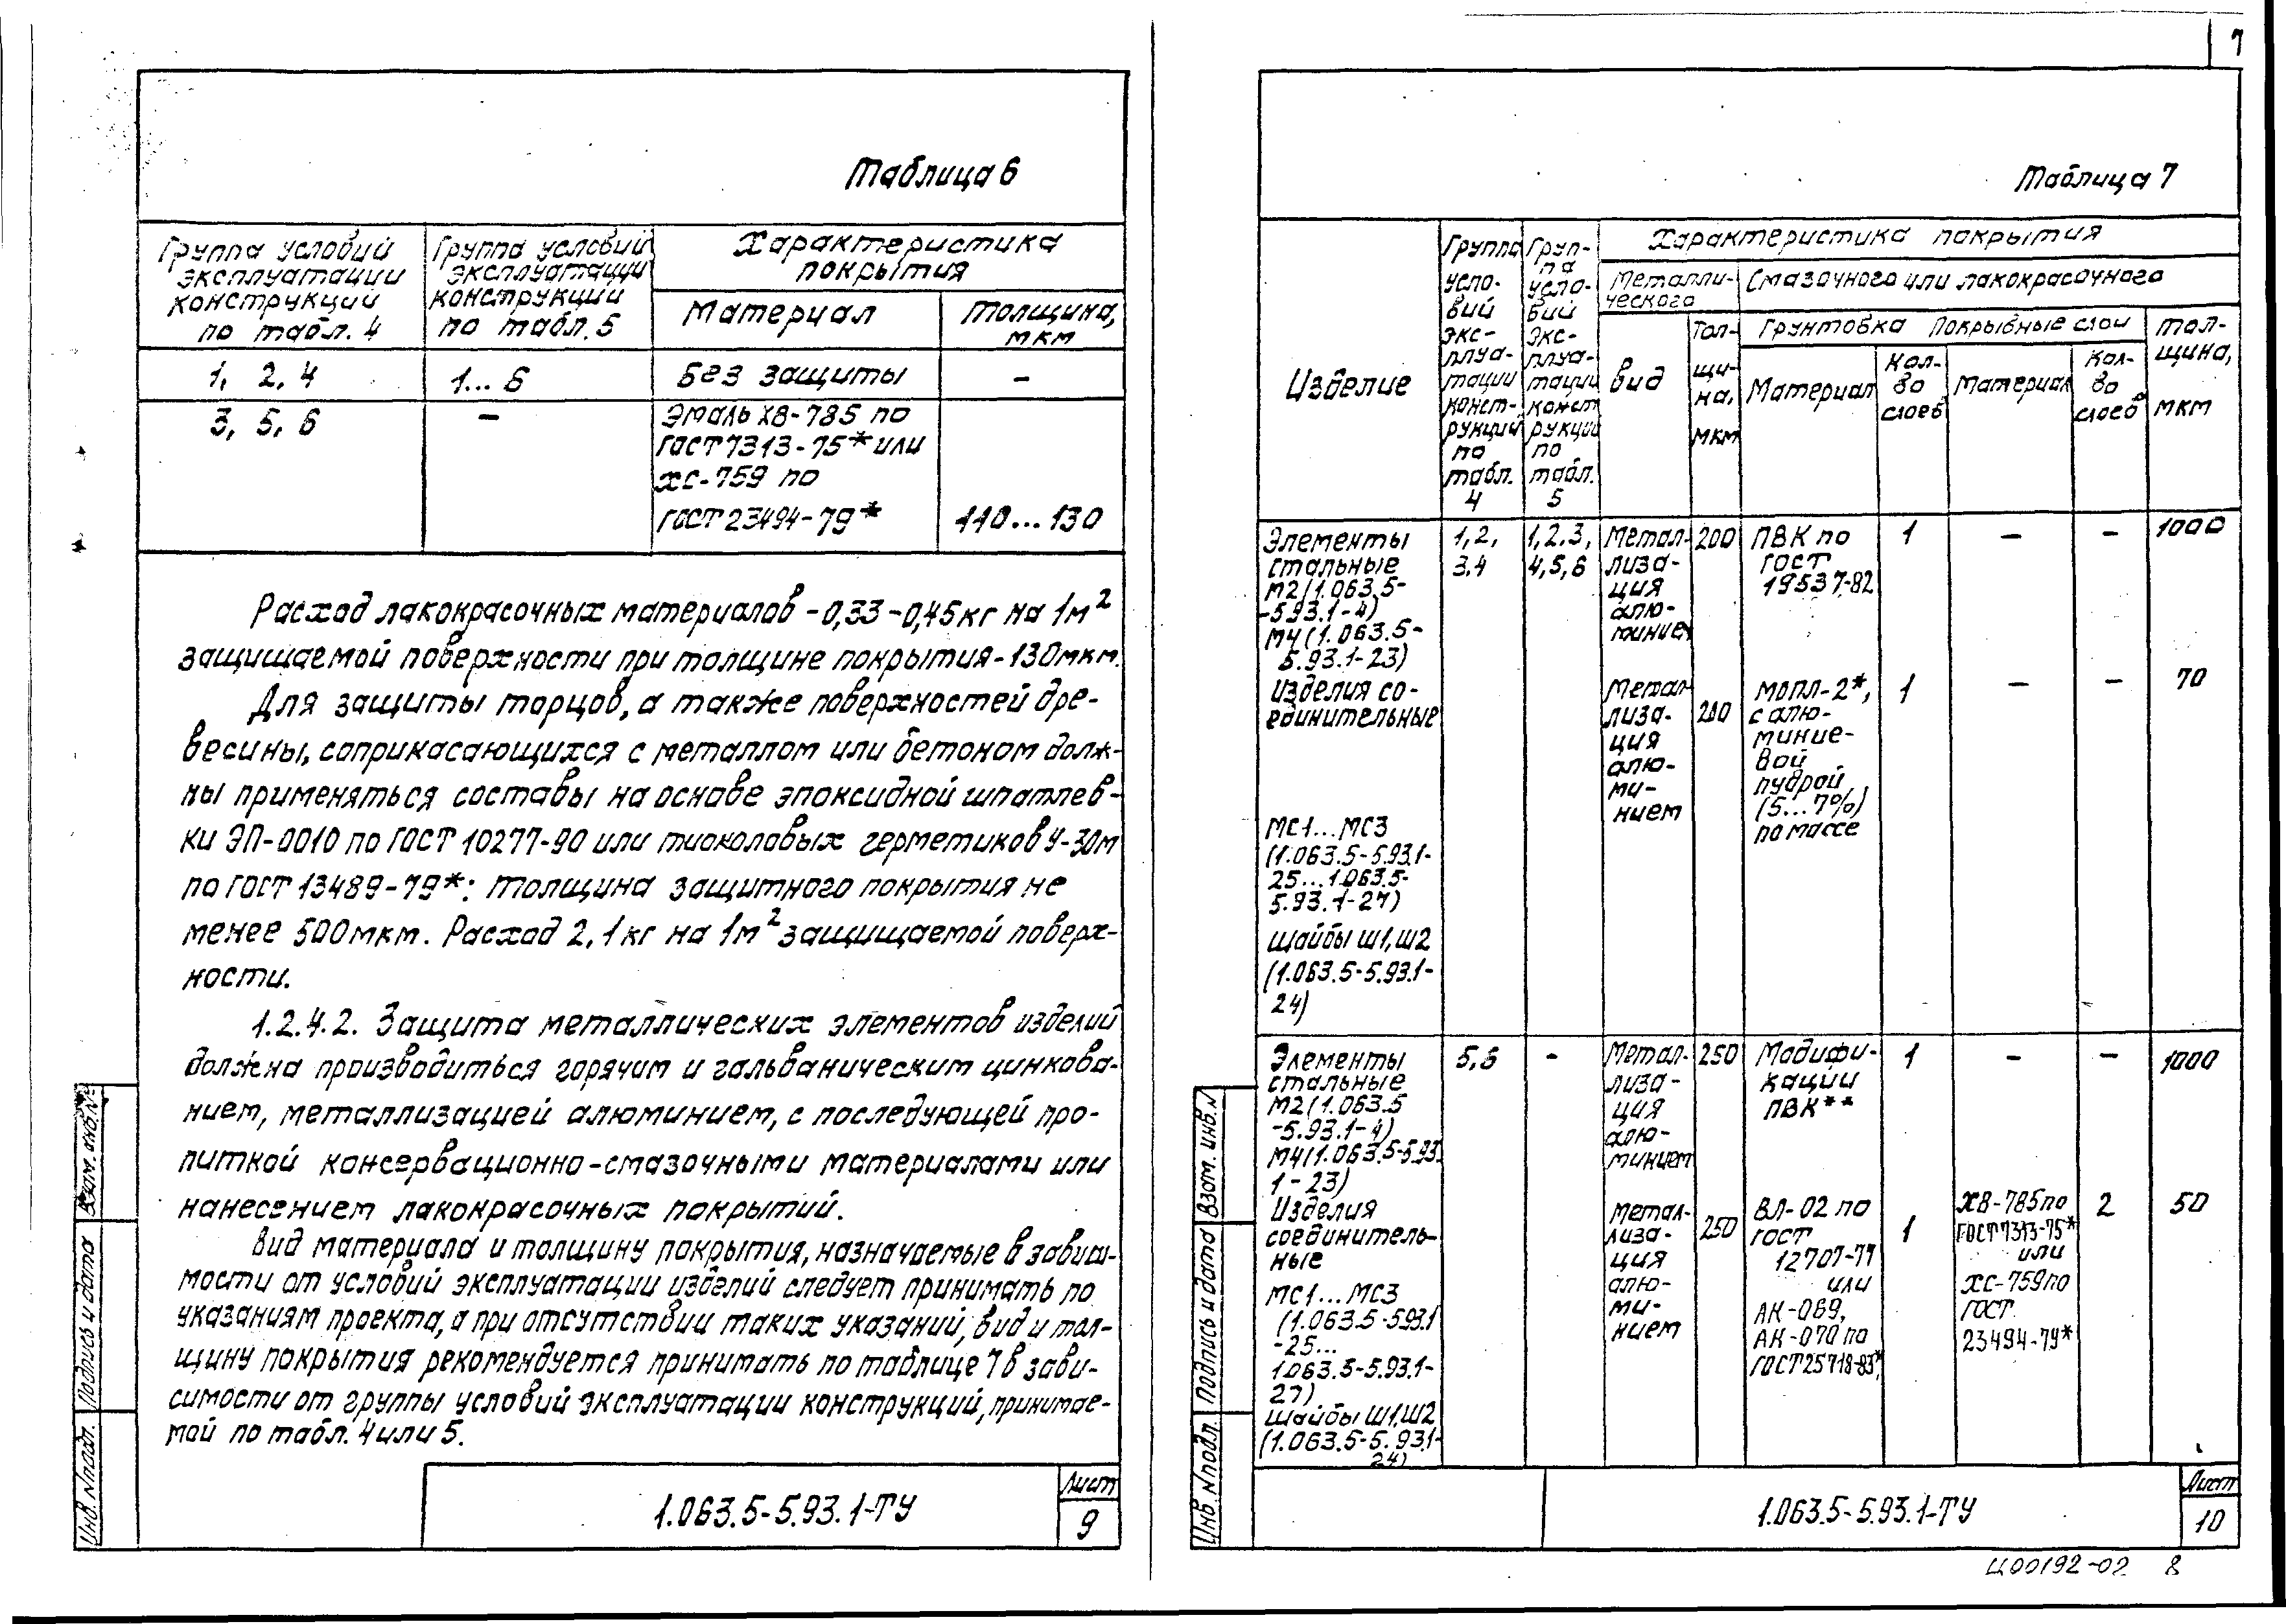 Таблица 6
Группа условий эксплуатации конструкций по табл. 4
Группа условий эксплуатации конструкции по табл. 5
Характеристика покрытия
Материал
Толщина, мкм
1, 2, 4
1... 6
Без защиты
–
3, 5, 6
–
Эмаль ХВ-785 по
ГОСТ 7313-75* или
ХС-759 по
ГОСТ 23494-79*
110...130
Расход лакокрасочных материалов – 0,33 – 0,45 кг на 1м²
защищаемой поверхности при толщине покрытия - 130мкм.
Для защиты торцов, а также поверхностей дре-
весины, соприкасающихся с металлом или бетоном долж-
ны применяться составы на основе эпоксидной шпатлев-
ки ЭП-0010 по ГОСТ 10277-90 или тиоколовых герметиков У-30м
по ГОСТ 13489-79*: Толщина защитного покрытия не
менее 500мкм. Расход 2,1 кг на 1м² защищаемой поверх-
ности.
1.2.4.2. Защита металлических элементов изделий
должна производиться горячим и гальваническим цинкова-
нием, металлизацией алюминием, с последующей про-
питкой консервационно-смазочными материалами или
нанесением лакокрасочных покрытий.
Вид материала и толщину покрытия, назначаемые в зависи-
мости от условий эксплуатации изделий следует принимать по
указаниям проекта, а при отсутствии таких указаний, вид и тол-
щину покрытия рекомендуется принимать по таблице 7 в зави-
симости от группы условий эксплуатации конструкций, принимае-
мой по табл. 4 или 5.
Взам. инв. №
Подпись и дата
Инв. № подл.
1.063.5-5.93.1-ТУ
Лист
9
7
Таблица 7
Изделие
Группа усло-вий экс-плуа-тации конст-рукций по табл. 4
Груп-па усло-вий экс-плуа-тации конст рукций по табл. 5
Характеристика покрытия
Металли-ческого
Смазочного или лакокрасочного
Вид
Тол-щи-на, мкм
Грунтовка
Покрывные слои
Тол-щина, мкм
Материал
Кол-во слоев
Материал
Кол-во слоев
Элементы стальные
М2 (1.063.5-
-5.93.1-4)
М4 (1.063.5-
5.93.1-23)
1,2, 3,4
1,2,3, 4,5,6
Метал-лиза-ция алю-минием
200
ПВК по ГОСТ 19537-82
1
–
–
1000
Изделия со-
единительные
Метал-лиза-ция алю-ми-нием
200
МОПЛ-2*, с алю-миние-вой пудрой (5...7%) по массе
1
–
–
70
МС1...МС3
(1.063.5-5.93.1-
25...1.063.5-
5.93.1-27)
Шайбы Ш1, Ш2
(1.063.5-5.93.1-
24)
Элементы стальные
М2 (1.063.5
-5.93.1-4)
М4 (1.063.5-5.93.
1-23)
5,6
–
Метал-лиза-ция алю-минием
250
Модифи-кации ПВК**
1
–
–
1000
Изделия
соединитель-
ные
МС1...МС3
(1.063.5-5.93.1
-25...
1.063.5-5.93.1-
27)
Шайбы Ш1, Ш2
(1.063.5-5.93.1-
24)
Метал-лиза-ция алю-ми-нием
250
ВЛ-02 по ГОСТ 12707-77 или АК-069, АК-070 по ГОСТ 25718-83*,
1
ХВ-785 по ГОСТ 7313-75* или ХС-759 по ГОСТ 23494-79*
2
50
Взам. инв. №
Подпись и дата
Инв. № подл.
1.063.5-5.93.1-ТУ
Лист
10
Ц00192-02 8